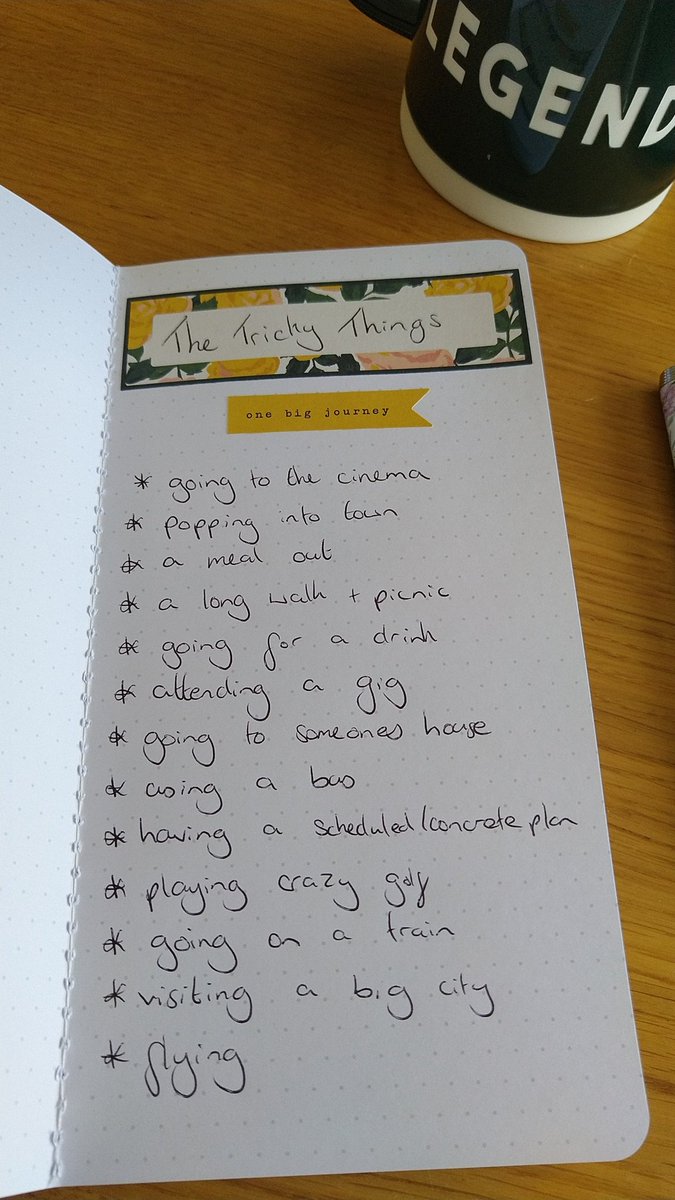 LEGEND
The Tricky Things
one big journey
* going to the cinema
* popping into town
* a meal out
* a long walk + picnic
* going for a drink
* attending a gig
* going to someones house
* using a bus
* having a scheduled/concrete plan
* playing crazy golf
* going on a train
* visiting a big city
* flying